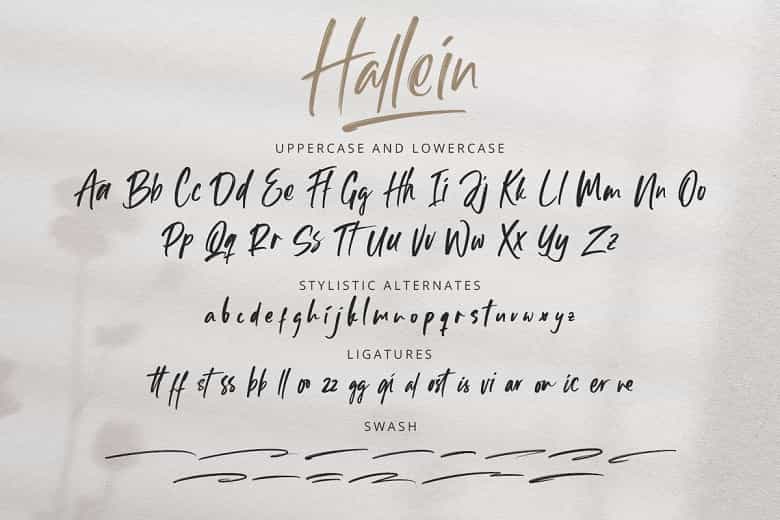 Hallein
UPPERCASE AND LOWERCASE
Aa Bb Cc Dd Ee Ff Gg Hh Ii Jj Kk Ll Mm Nn Oo
Pp Qq Rr Ss Tt Uu Vv Ww Xx Yy Zz
STYLISTIC ALTERNATES
a b c d e f g h i j k l m n o p q r s t u v w x y z
LIGATURES
tt ff st ss bb ll oo zz gg gi al ost is vi ar on ic er re
SWASH